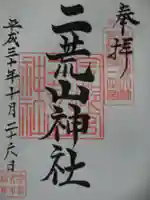 奉拝
二荒山神社
平成三十年十月二十八日